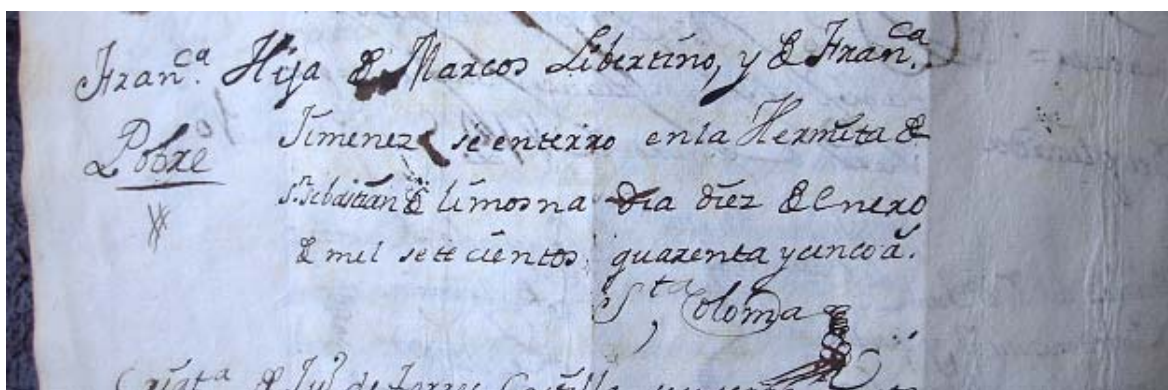 Fran.ca Hija de Marcos Libertino, y de Fran.ca
Pobre
Jimenez se enterro en la Hermita de
Sn. Sebastian de limosna dia diez de Enero
de mil sete cientos, quarenta y cinco a.
Sta Coloma
de Torres